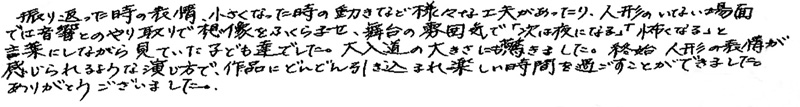 振り返った時の表情、小さくなった時の動きなど様々な工夫があったり、人形のいない場面
では音響とのやり取りで想像をふくらませ、舞台の雰囲気で「次は夜になる」「怖くなる」と
言葉にしながら見ていた子ども達でした。大入道の大きさに驚きました。終始人形の表情が
感じられるような演じ方で、作品にどんどん引き込まれ楽しい時間を過ごすことができました。
ありがとうございました。